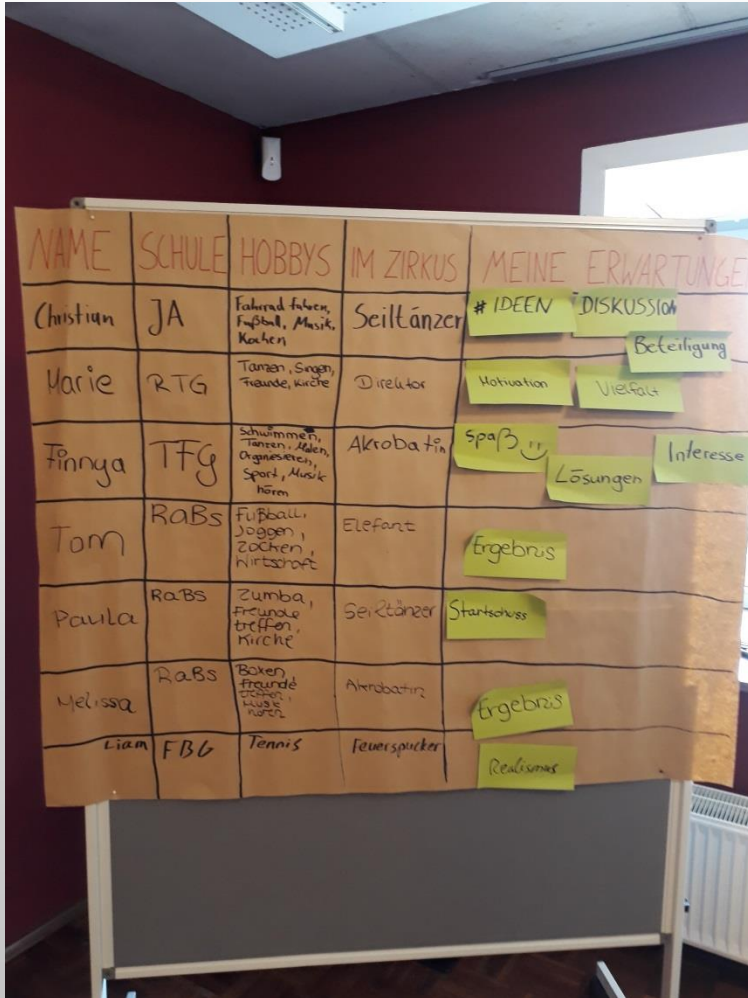 NAME SCHULE HOBBYS IM ZIRKUS MEINE ERWARTUNGE
Christian
JA
Fahrrad fahren,
Fußball, Musik,
Kochen
Seiltänzer
# IDEEN
DISKUSSION
Beteiligung
Marie
RTG
Tanzen, Singen,
Freunde, Kirche
Direktor
Motivation
Vielfalt
Finnya
TFG
Schwimmen,
Tanzen, Malen,
Organisieren,
Sport, Musik
hören
Akrobatin
Spaß
Lösungen
Interesse
Tom
RaBs
Fußball,
Joggen,
Zocken,
Wirtschaft
Elefant
Ergebnis
Paula
RaBs
Zumba,
Freunde
treffen,
Kirche
Seiltänzer
Startschuss
Melissa
RaBs
Boxen
Freunde
treffen,
Musik
hören
Akrobatin
Ergebnis
Liam
FBG
Tennis
Feuerspucker
Realismus